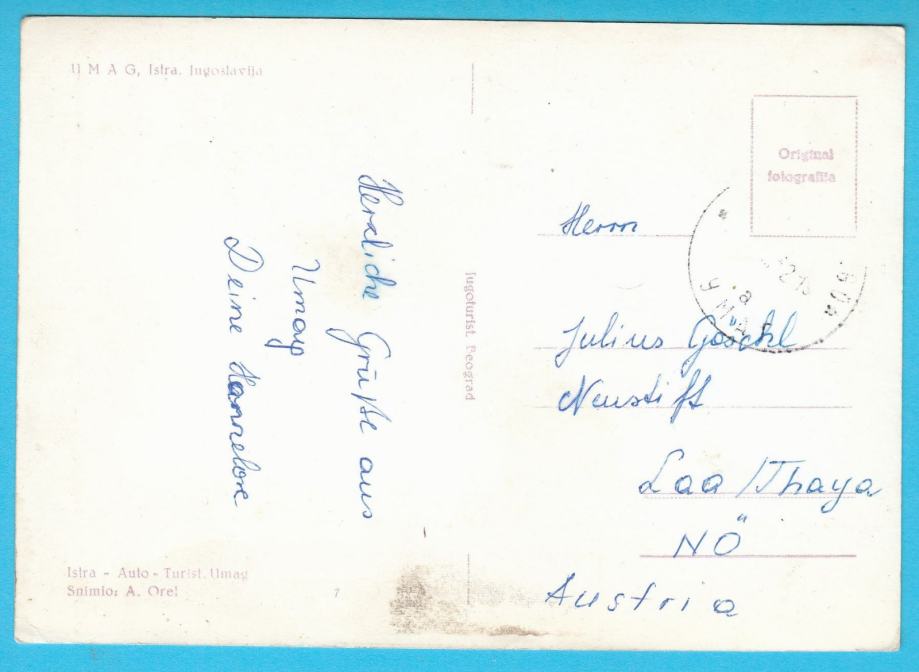 UMAG, Istra. Jugoslavija
Herzliche Grüße aus
Umag
Deine Hannelore
Istra - Auto - Turist. Umag
Snimio: A. Orel
7
Jugoturist. Beograd
Original
fotografija
UMAG
a
Herrn
Julius Göschl
Neustift
Laa /Thaya
NÖ
Austria